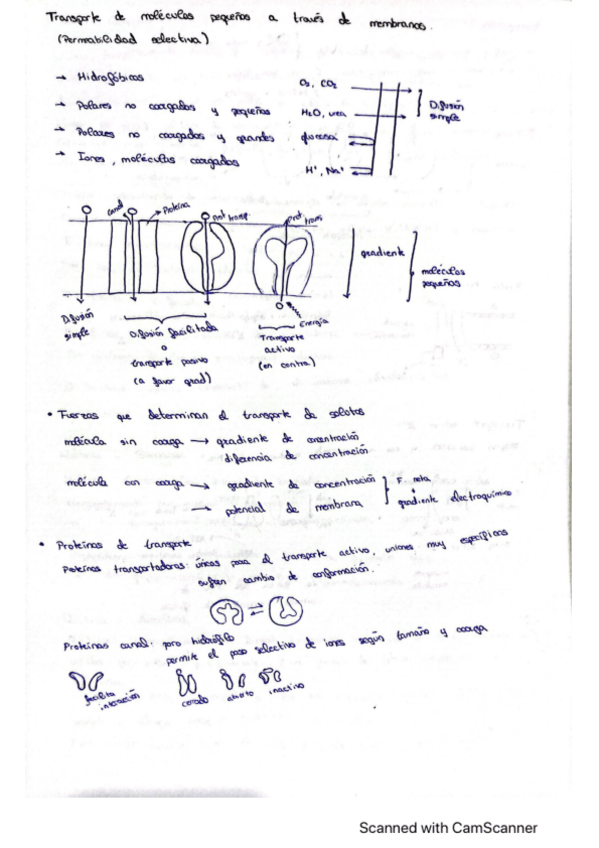 Transporte de moléculas pequeñas a través de membranas.
(Permeabilidad selectiva)
→ Hidrofóbicos
→ Polares no cargados y pequeños
→ Polares no cargados y grandes
→ Iones, moléculas cargadas
O₂, CO₂
H₂O, urea
glucosa
H⁺, Na⁺
Difusión
simple
canal
Proteína
prot transp.
prot
trans
gradiente
moléculas
pequeños
Difusión
simple
Difusión facilitada
o
transporte pasivo
(a favor grad)
Energía
Transporte
activo
(en contra)
• Fuerzas que determinan el transporte de solutos
molécula sin carga → gradiente de concentración
diferencia de concentración
molécula con carga → gradiente de concentración
→ potencial de membrana
F. neta
gradiente electroquímico
• Proteínas de transporte
Proteínas transportadoras: únicas para el transporte activo, uniones muy específicas
sufren cambio de conformación.
Proteínas canal: poro hidrófilo
permite el paso selectivo de iones según tamaño y carga
facilita
interacción
cerrado
abierto
inactivo
Scanned with CamScanner